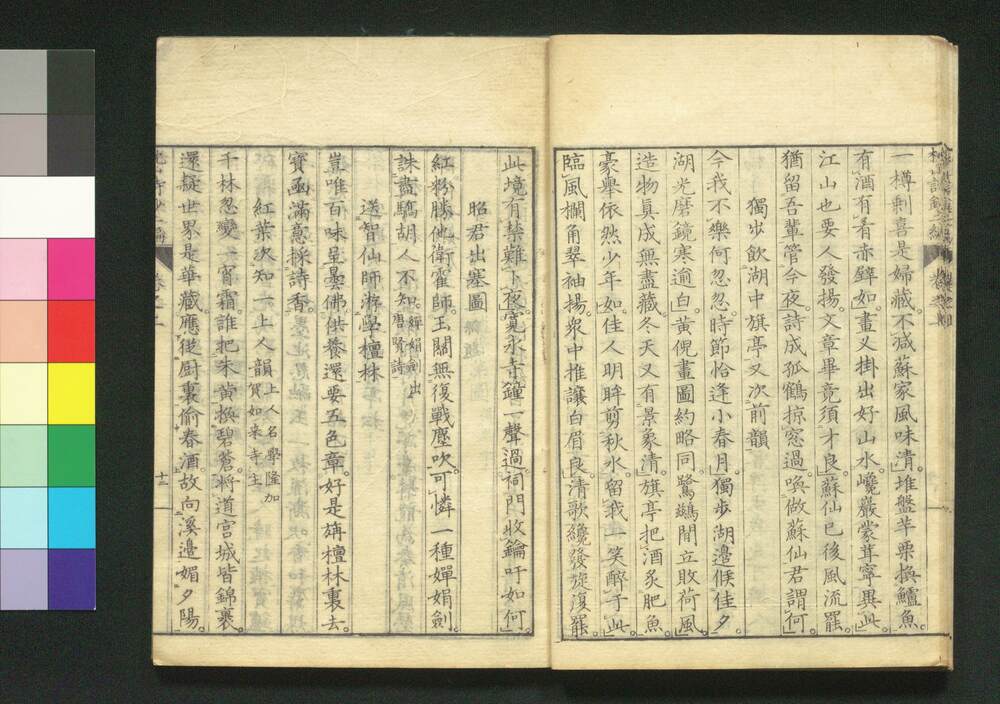 一樽剰喜是婦藏。不減蘇家風味清。堆盤芋栗換鱸魚。
有酒有肴赤壁如。畫又掛出好山水。巉巖蒙茸寧異此。
江山也要人發揚。文章畢竟須才良。蘇仙已後風流罷。
猶留吾輩管今夜。詩成孤鶴掠窓過。喚做蘇仙君謂何。
獨出飲湖中旗亭又次前韻
今我不樂何忽忽。時節恰逢小春月。獨歩湖邊候佳夕。
湖光磨鏡寒逾白。黄倪畫圖約略同。鷺鷀閒立敗荷風。
造物真成無盡藏。冬天又有景象清。旗亭把酒炙肥魚。
豪興依然少年如。佳人明眸剪秋水。留我一笑醉于此。
臨風欄角翠袖揚。衆中推讓白眉良。清歌纔發旋復罷。
此境有禁難卜夜。寛永寺鐘一聲過。祠門收鑰吁如何。
昭君出塞圖
紅粉勝他衛霍師。玉關無復戰塵吹。可憐一種嬋娟劍。
誅盡驕胡人不知。嬋娟劍出唐賢詩
送智仙師游學檀林
豈唯百味呈曇佛。供養還要五色章。好是旃檀林裏去。
寶函滿意採詩香。
紅葉次知一上人韻上人名學隆加賀如來寺主
千林忽變一宵霜。誰把朱黄換碧蒼。將道宮城皆錦裹。
還疑世界是華藏。應從厨裏偷春酒。故向溪邊媚夕陽。
十二